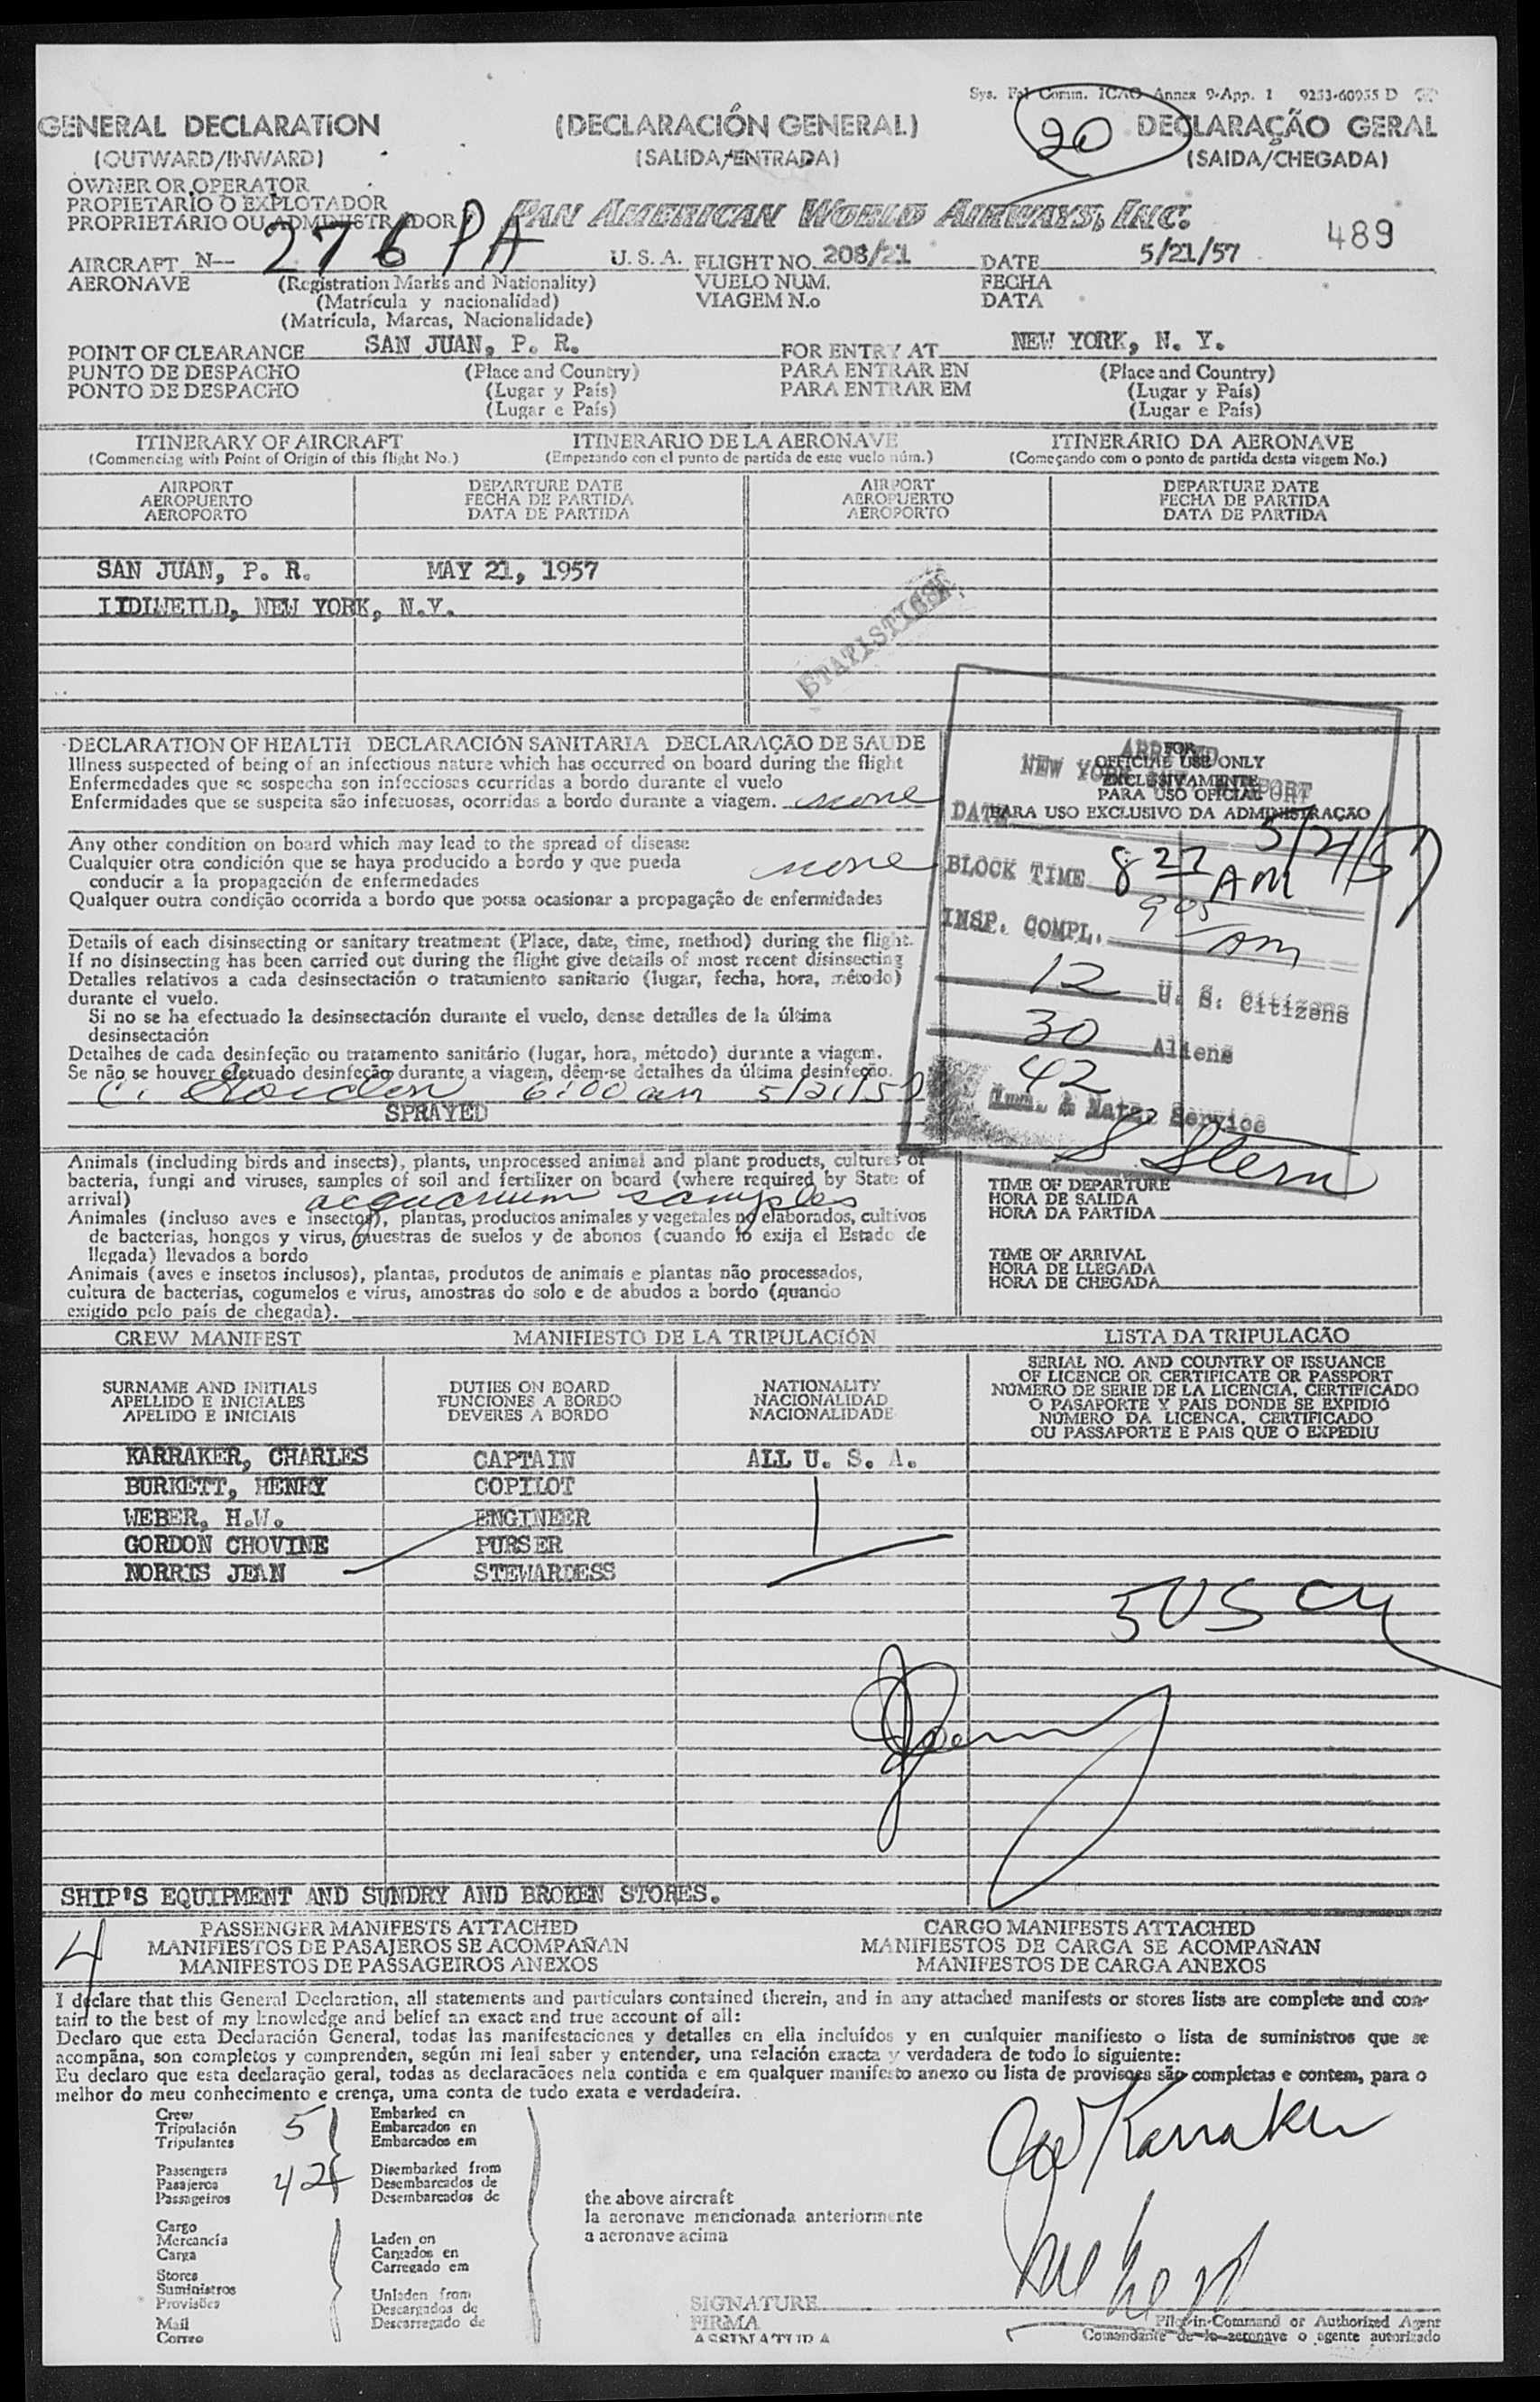 Sys. Fal Comm. ICAO Annex 9-App. 1 9253-60955 D
GENERAL DECLARATION (DECLARACIÓN GENERAL) 20 DECLARAÇÃO GERAL
(OUTWARD/INWARD) (SALIDA/ENTRADA) (SAIDA/CHEGADA)
OWNER OR OPERATOR
PROPIETARIO O EXPLOTADOR
PROPRIETÁRIO OU ADMINISTRADOR PAN AMERICAN WORLD AIRWAYS, INC. 489
AIRCRAFT N-- 276 PA U. S. A. FLIGHT NO. 208/21 DATE 5/21/57
AERONAVE (Registration Marks and Nationality) VUELO NUM. FECHA
(Matrícula y nacionalidad) VIAGEM N.o DATA
(Matrícula, Marcas, Nacionalidade)
POINT OF CLEARANCE SAN JUAN, P. R. FOR ENTRY AT NEW YORK, N. Y.
PUNTO DE DESPACHO (Place and Country) PARA ENTRAR EN (Place and Country)
PONTO DE DESPACHO (Lugar y País) PARA ENTRAR EM (Lugar y País)
(Lugar e País) (Lugar e País)
ITINERARY OF AIRCRAFT ITINERARIO DE LA AERONAVE ITINERÁRIO DA AERONAVE
(Commencing with Point of Origin of this flight No.) (Empezando con el punto de partida de este vuelo núm.) (Começando com o ponto de partida desta viagem No.)
AIRPORT DEPARTURE DATE AIRPORT DEPARTURE DATE
AEROPUERTO FECHA DE PARTIDA AEROPUERTO FECHA DE PARTIDA
AEROPORTO DATA DE PARTIDA AEROPORTO DATA DE PARTIDA
SAN JUAN, P. R. MAY 21, 1957
IIDLWEILD, NEW YORK, N.Y.
STATISTICS
DECLARATION OF HEALTH DECLARACIÓN SANITARIA DECLARAÇÃO DE SAUDE
Illness suspected of being of an infectious nature which has occurred on board during the flight
Enfermedades que se sospecha son infecciosas ocurridas a bordo durante el vuelo
Enfermidades que se suspeita são infetuosas, ocorridas a bordo durante a viagem. none
Any other condition on board which may lead to the spread of disease
Cualquier otra condición que se haya producido a bordo y que pueda none
conducir a la propagación de enfermedades
Qualquer outra condição ocorrida a bordo que possa ocasionar a propagação de enfermidades
Details of each disinsecting or sanitary treatment (Place, date, time, method) during the flight.
If no disinsecting has been carried out during the flight give details of most recent disinsecting
Detalles relativos a cada desinsectación o tratamiento sanitario (lugar, fecha, hora, método)
durante el vuelo.
Si no se ha efectuado la desinsectación durante el vuelo, dense detalles de la última
desinsectación
Detalhes de cada desinfeção ou tratamento sanitário (lugar, hora, método) durante a viagem.
Se não se houver efetuado desinfeção durante a viagem, dêem-se detalhes da última desinfeção.
6:00 am 5/21/57
SPRAYED
FOR
OFFICIAL USE ONLY
EXCLUSIVAMENTE
PARA USO OFICIAL
PARA USO EXCLUSIVO DA ADMINISTRAÇÃO
ARRIVED
NEW YORK AIRPORT
DATE 5/21/57
BLOCK TIME 8 27 AM
INSP. COMPL. 9 05 am
12 U. S. Citizens
30 Aliens
42
Imm. & Natz. Service
S Stern
Animals (including birds and insects), plants, unprocessed animal and plant products, cultures of
bacteria, fungi and viruses, samples of soil and fertilizer on board (where required by State of
arrival) acquarium samples
Animales (incluso aves e insectos), plantas, productos animales y vegetales no elaborados, cultivos
de bacterias, hongos y virus, muestras de suelos y de abonos (cuando lo exija el Estado de
llegada) llevados a bordo
Animais (aves e insetos inclusos), plantas, produtos de animais e plantas não processados,
cultura de bacterias, cogumelos e virus, amostras do solo e de abudos a bordo (quando
exigido pelo país de chegada).
TIME OF DEPARTURE
HORA DE SALIDA
HORA DA PARTIDA
TIME OF ARRIVAL
HORA DE LLEGADA
HORA DE CHEGADA
CREW MANIFEST MANIFIESTO DE LA TRIPULACIÓN LISTA DA TRIPULACÃO
SURNAME AND INITIALS DUTIES ON BOARD NATIONALITY
APELLIDO E INICIALES FUNCIONES A BORDO NACIONALIDAD
APELIDO E INICIAIS DEVERES A BORDO NACIONALIDADE
SERIAL NO. AND COUNTRY OF ISSUANCE
OF LICENCE OR CERTIFICATE OR PASSPORT
NÚMERO DE SERIE DE LA LICENCIA, CERTIFICADO
O PASAPORTE Y PAIS DONDE SE EXPIDIÓ
NÚMERO DA LICENCA, CERTIFICADO
OU PASSAPORTE E PAIS QUE O EXPEDIU
KARRAKER, CHARLES CAPTAIN ALL U. S. A.
BURKETT, HENRY COPILOT
WEBER, H.W. ENGINEER
GORDON CHOVINE PURSER
NORRIS JEAN STEWARDESS
5 USC
SHIP'S EQUIPMENT AND SUNDRY AND BROKEN STORES.
4 PASSENGER MANIFESTS ATTACHED CARGO MANIFESTS ATTACHED
MANIFIESTOS DE PASAJEROS SE ACOMPAÑAN MANIFIESTOS DE CARGA SE ACOMPAÑAN
MANIFESTOS DE PASSAGEIROS ANEXOS MANIFESTOS DE CARGA ANEXOS
I declare that this General Declaration, all statements and particulars contained therein, and in any attached manifests or stores lists are complete and con-
tain to the best of my knowledge and belief an exact and true account of all:
Declaro que esta Declaración General, todas las manifestaciones y detalles en ella incluídos y en cualquier manifiesto o lista de suministros que se
acompãna, son completos y comprenden, según mi leal saber y entender, una relación exacta y verdadera de todo lo siguiente:
Eu declaro que esta declaração geral, todas as declaracãoes nela contida e em qualquer manifesto anexo ou lista de provisoes são completas e contem, para o
melhor do meu conhecimento e crença, uma conta de tudo exata e verdadeira.
Crew Embarked on
Tripulación 5 Embarcados en
Tripulantes Embarcados em
Passengers Disembarked from
Pasajeros 42 Desembarcados de
Passageiros Desembarcados de
the above aircraft
la aeronave mencionada anteriormente
a aeronave acima
Cargo
Mercancía Laden on
Carga Cargados en
Carregado em
Stores
Suministros Unladen from
Provisões Descargados de
Mail Descarregado de
Correo
Karraker
SIGNATURE
FIRMA
ASSINATURA
Pilot-in-Command or Authorized Agent
Comandante de lo aeronave o agente autorizado